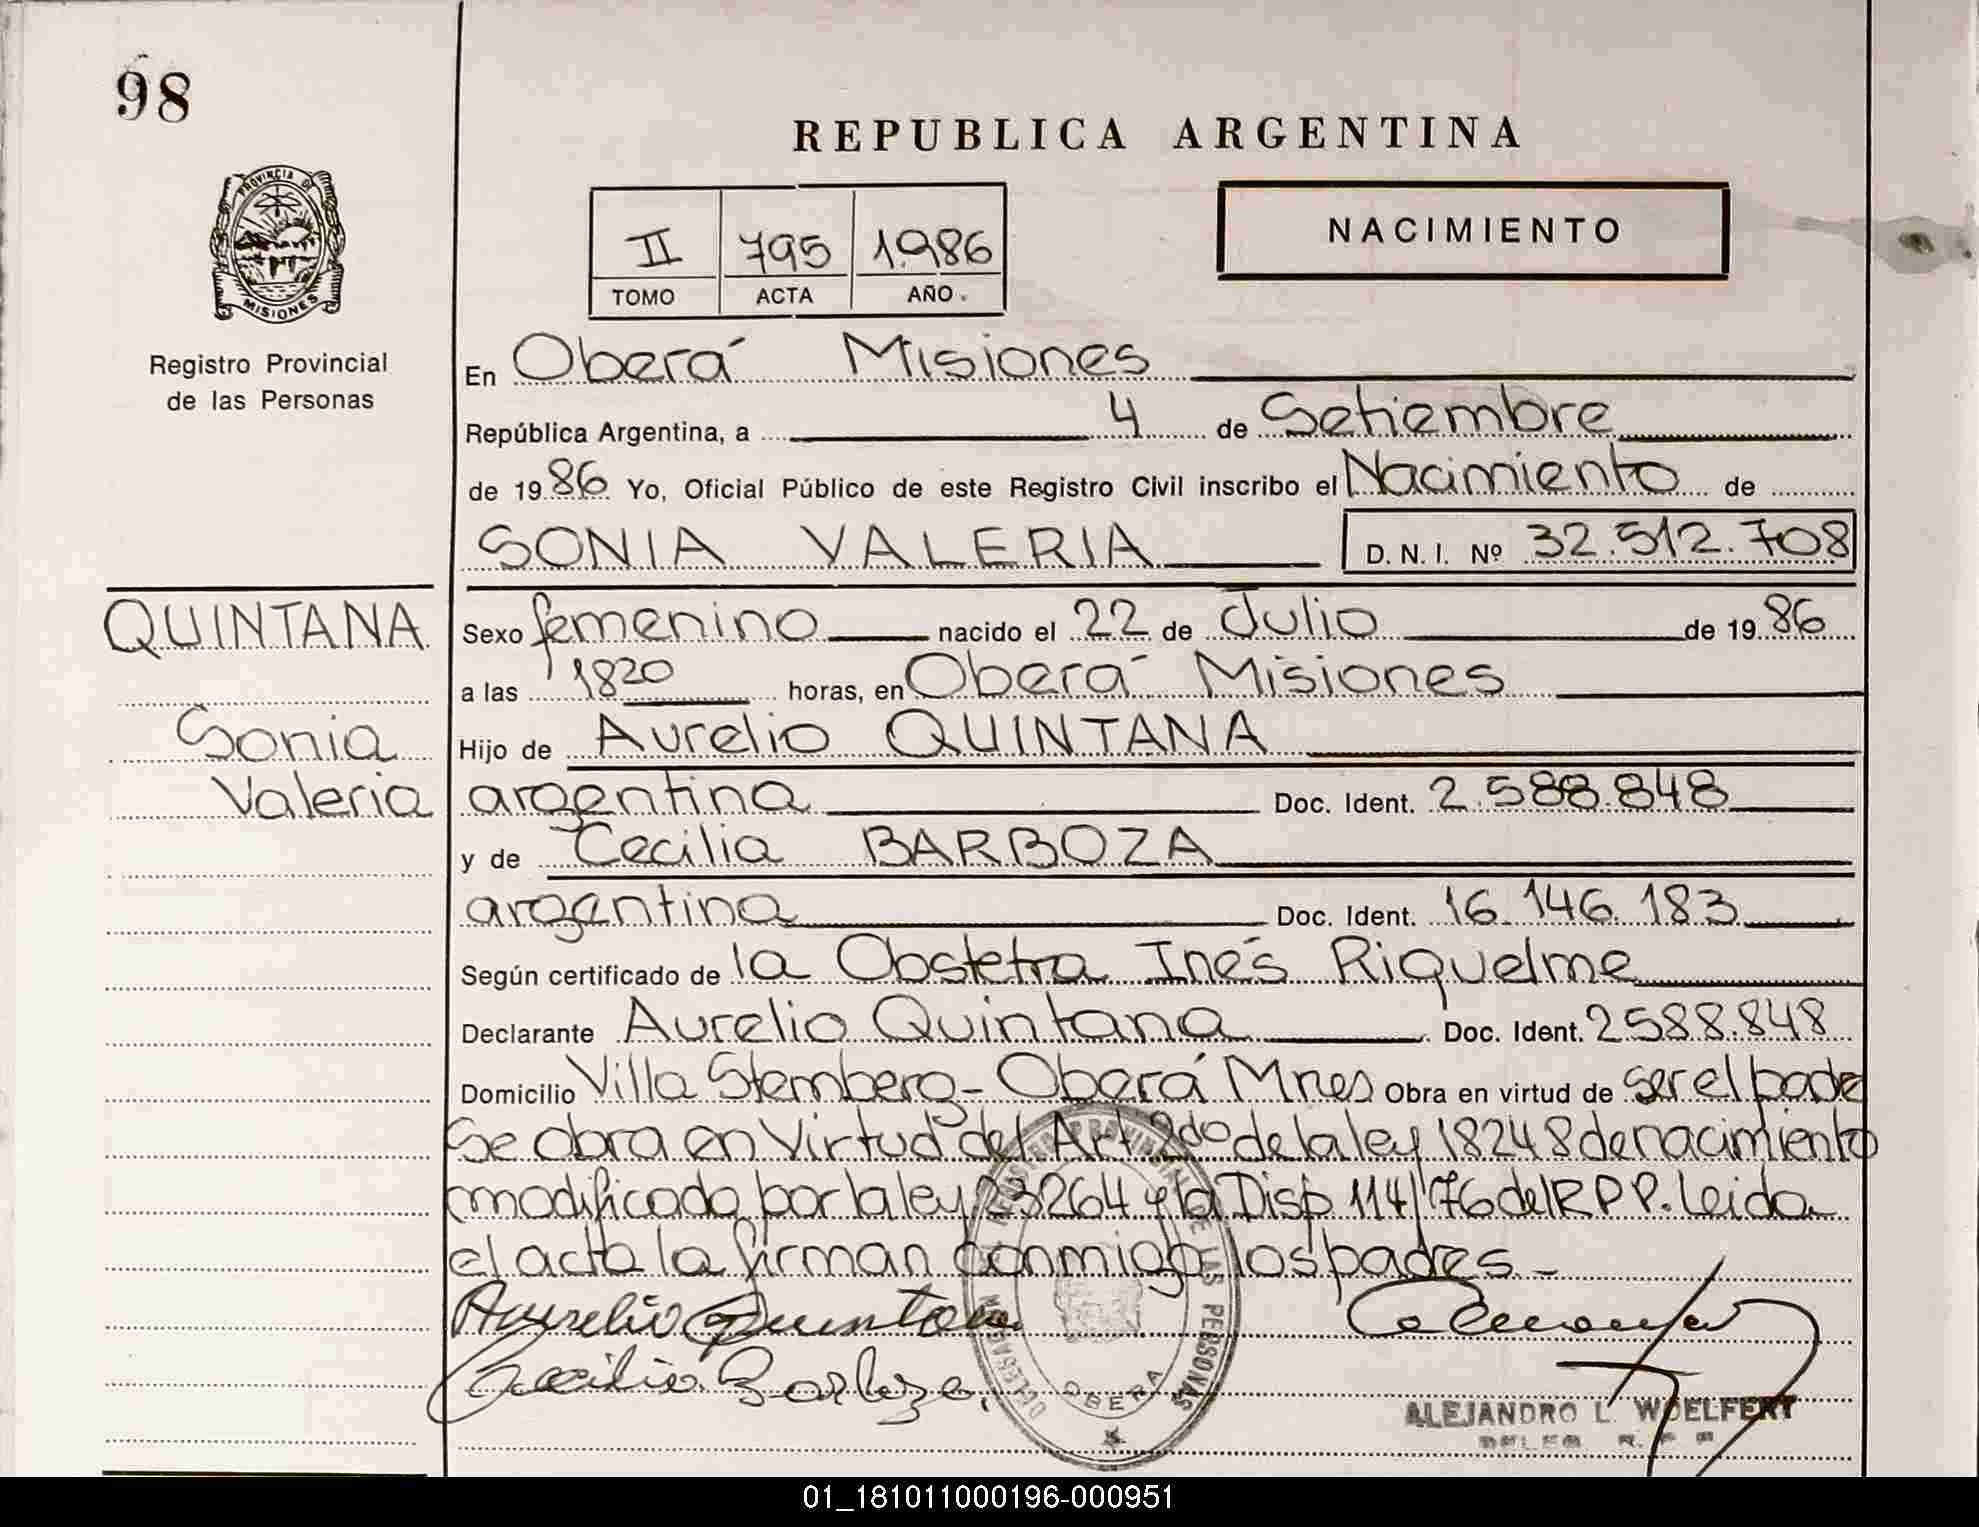 98
REPUBLICA ARGENTINA
PROVINCIA DE
MISIONES
NACIMIENTO
II 795 1.986
TOMO ACTA AÑO.
Registro Provincial
de las Personas
En Oberá Misiones
República Argentina, a 4 de Setiembre
de 1986 Yo, Oficial Público de este Registro Civil inscribo el Nacimiento de
SONIA VALERIA D. N. I. Nº 32.512.708
QUINTANA
Sonia
Valeria
Sexo femenino nacido el 22 de Julio de 1986
a las 1820 horas, en Oberá Misiones
Hijo de Aurelio QUINTANA
argentina Doc. Ident. 2.588.848
y de Cecilia BARBOZA
argentina Doc. Ident. 16.146.183
Según certificado de la Obstetra Inés Riquelme
Declarante Aurelio Quintana Doc. Ident. 2588.848
Domicilio Villa Stemberg - Oberá Mnes Obra en virtud de ser el padre
Se obra en Virtud del Art 2do de la ley 18248 de nacimiento
modificado por la ley 23264 y la Disp. 114/76 del R P P. Leida
el acta la firman conmigo los padres. -
Aurelio Quintana
Cecilia Barboza
PROVINCIAL DE LAS PERSONAS
OBERA
ALEJANDRO L. WOELFERT
01_181011000196-000951